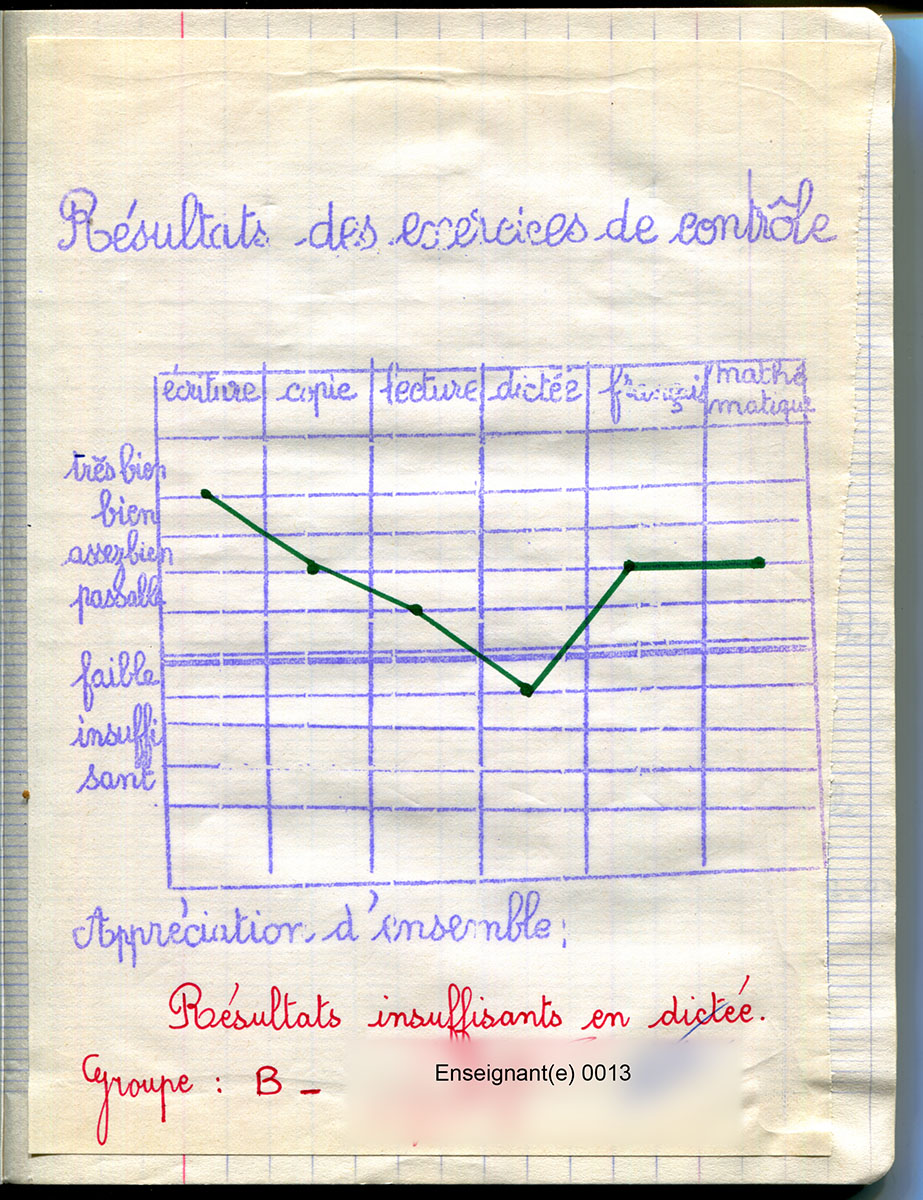 Résultats des exercices de contrôle
écriture copie lecture dictée français mathé
matique
très bien
bien
assez bien
passable
faible
insuffi
sant
Appréciation d'ensemble :
Résultats insuffisants en dictée.
Groupe : B –
Enseignant(e) 0013